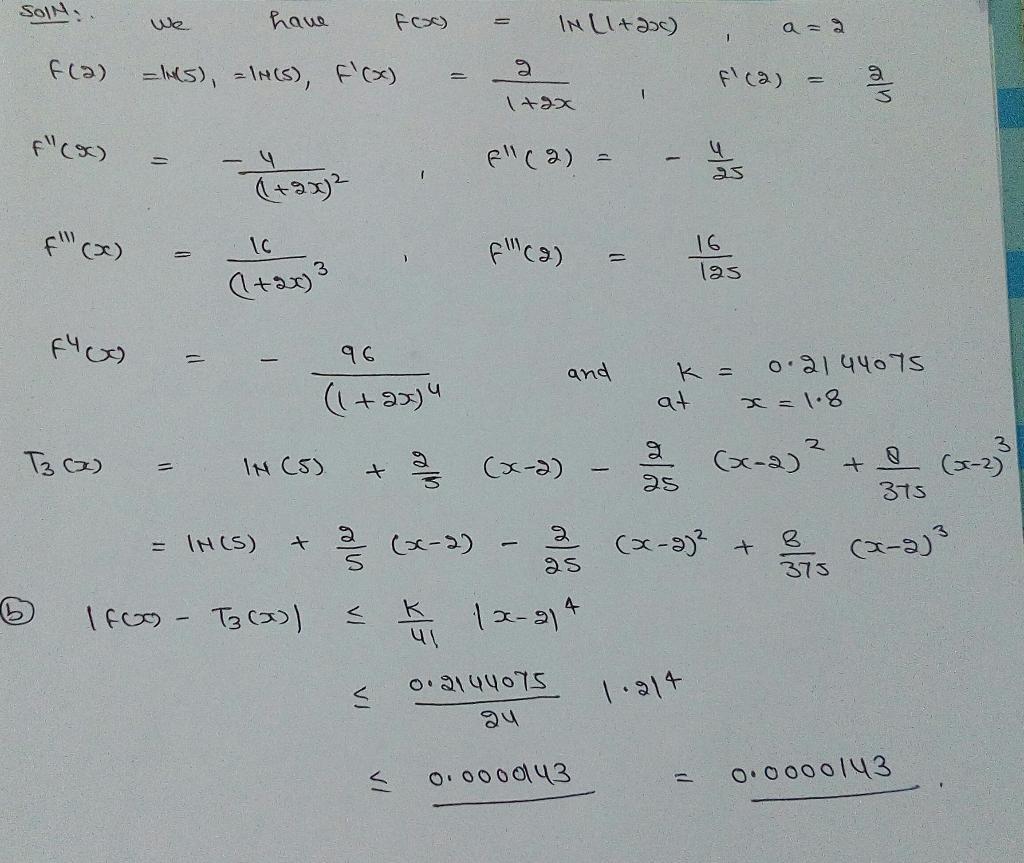 Soln:. we have f(x) = IN(1+2x) , a = 2
f(2) =IN(5), =IN(5), f'(x) = 2/(1+2x) , f'(2) = 2/5
f''(x) = - 4/(1+2x)² , f''(2) = - 4/25
f'''(x) = 16/(1+2x)³ , f'''(2) = 16/125
f⁴(x) = - 96/(1+2x)⁴ and k = 0.2144075
at x = 1.8
T₃(x) = IN(5) + 2/5 (x-2) - 2/25 (x-2)² + 8/375 (x-2)³
= IN(5) + 2/5 (x-2) - 2/25 (x-2)² + 8/375 (x-2)³
ⓑ |f(x) - T₃(x)| ≤ K/4! |x-2|⁴
≤ 0.2144075/24 |.2|⁴
≤ 0.0000143 = 0.0000143 .